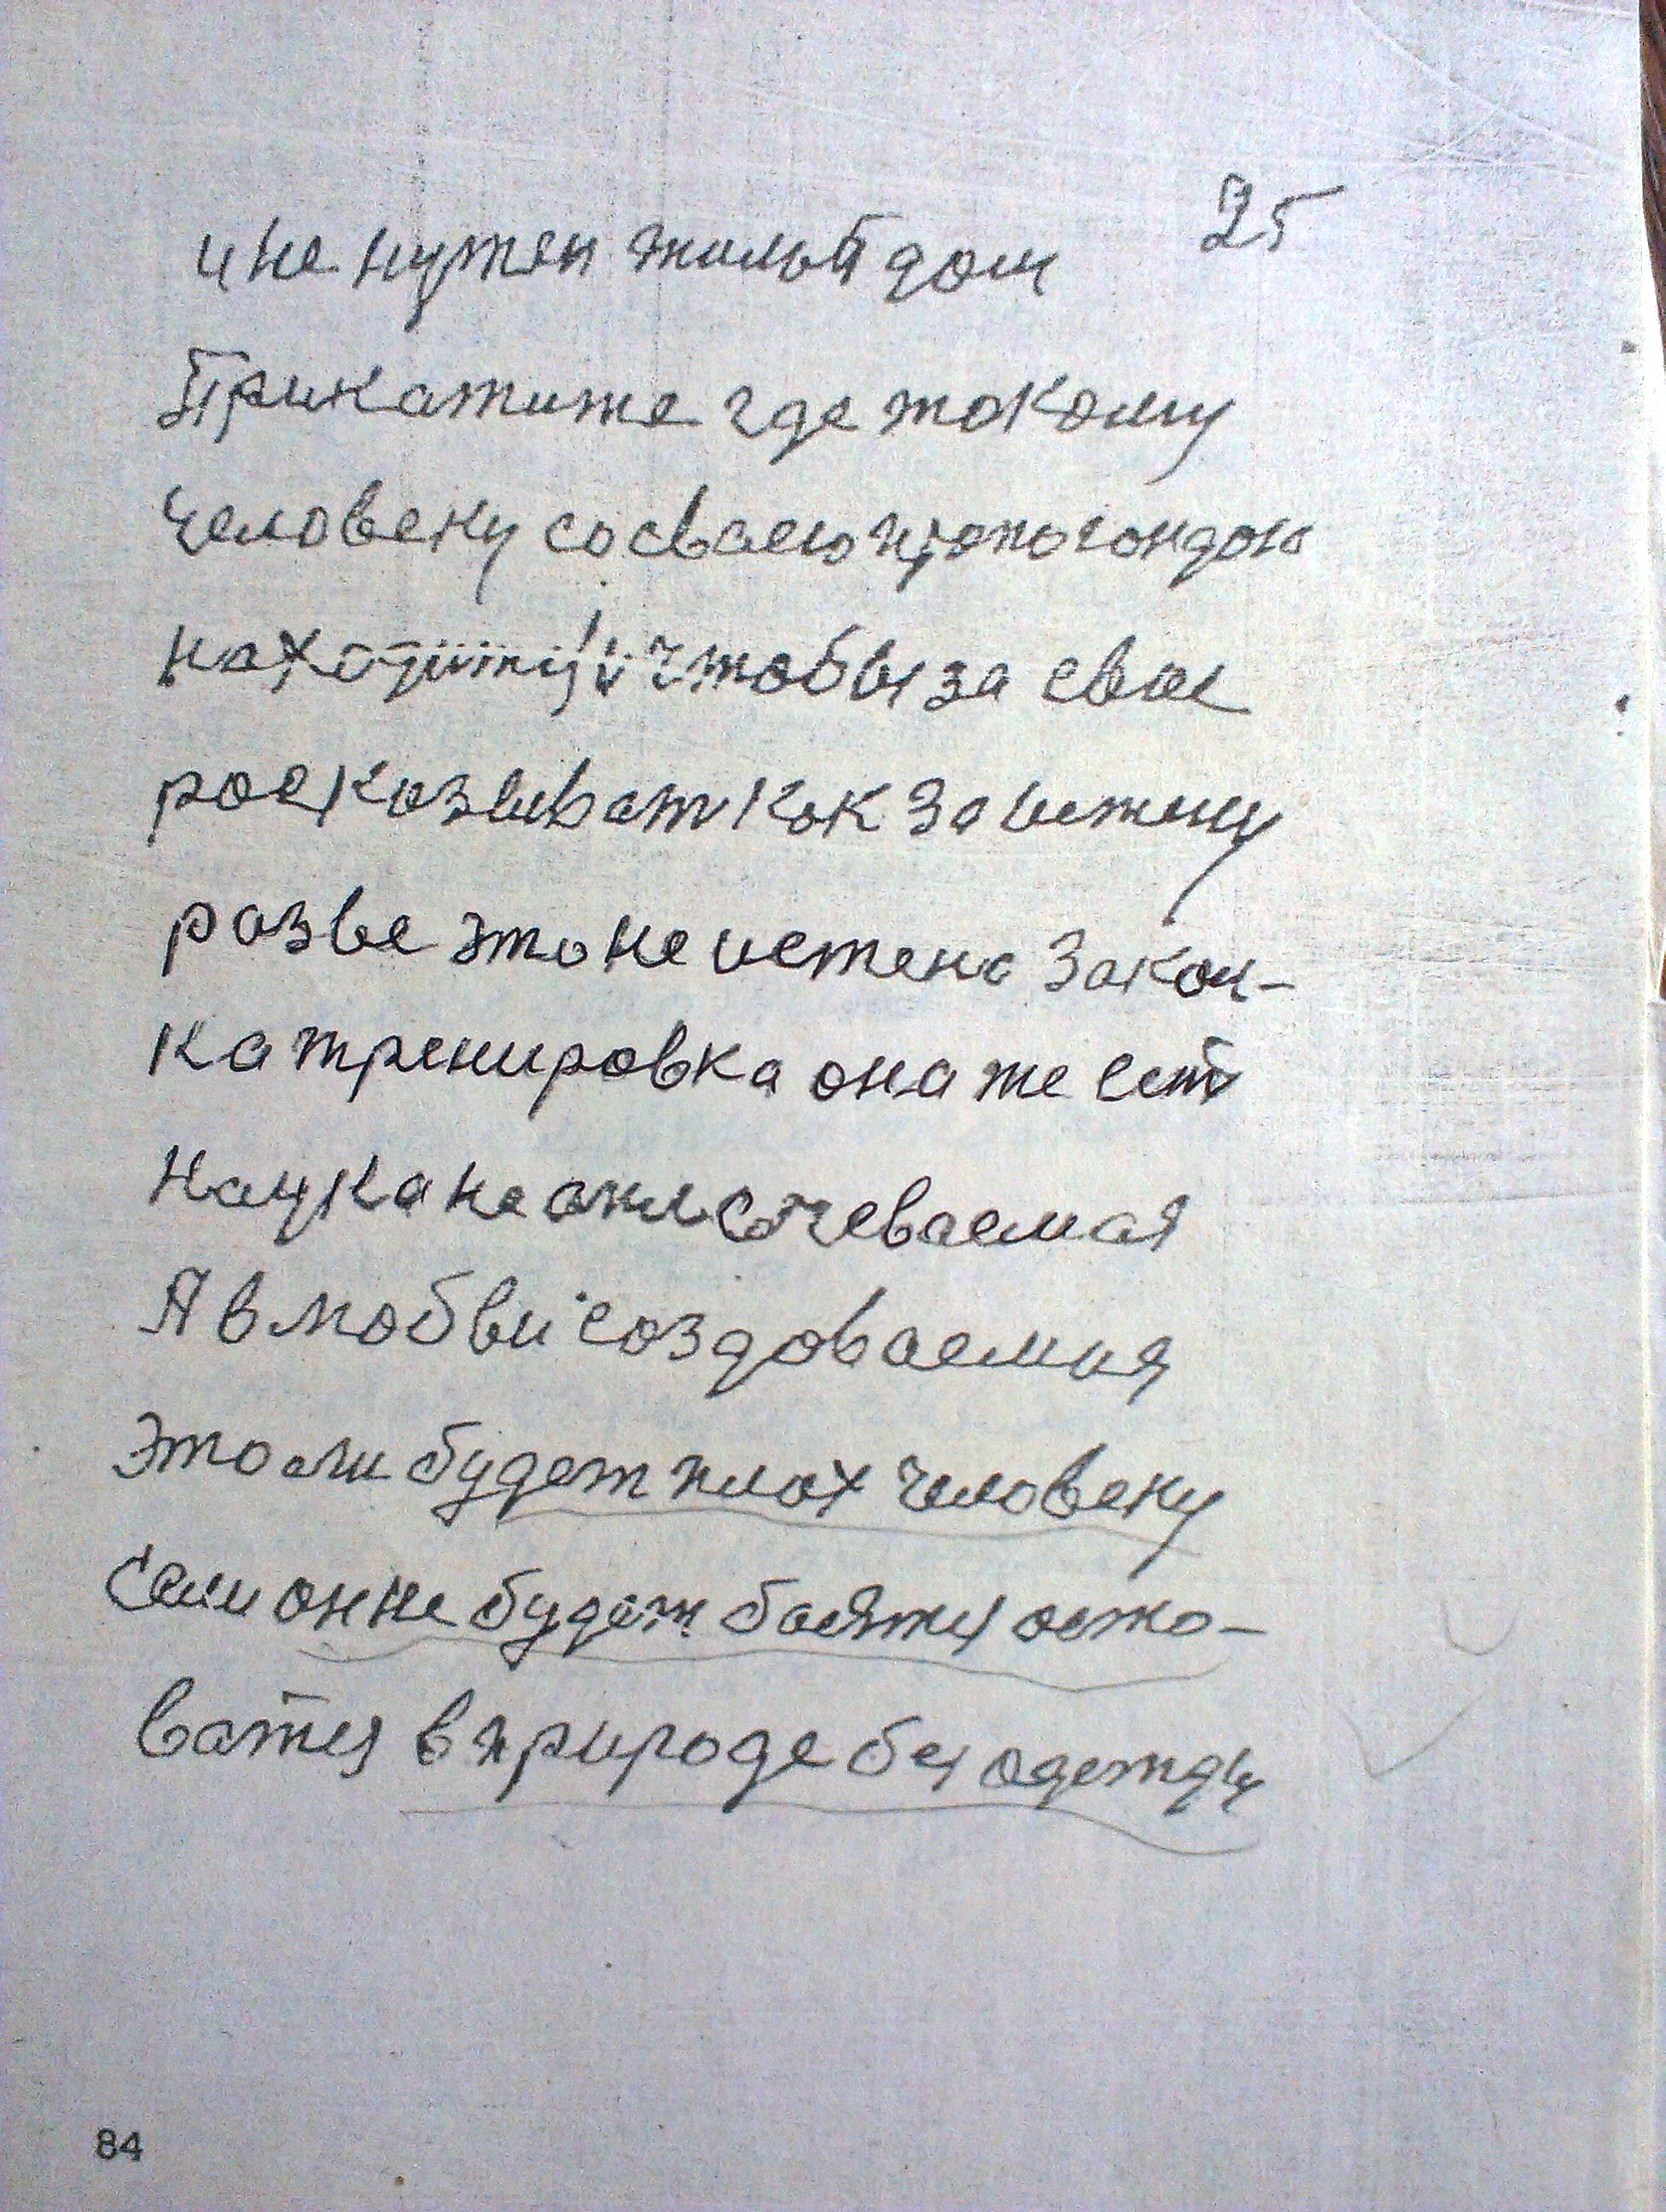 25
и не нужен жилый дом
Прикатиже где токому
человеку со сваею пропогондою
находитця чтобы за свое
росказыват как за истену
разве это не истена закол-
ка тренировка она же ест
наука не
Я в любви создоваемия
Это ли будет плох человеку
если он не будет баятця осто-
ватця в природе без одежды
84